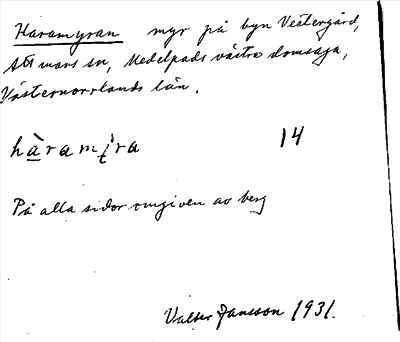 Haramyran myr på byn Vestergård,
Attmars sn, Medelpads västra domsaga,
Västernorrlands län.
hàramỳra 14
På alla sidor omgiven av berg
Valter Jansson 1931.